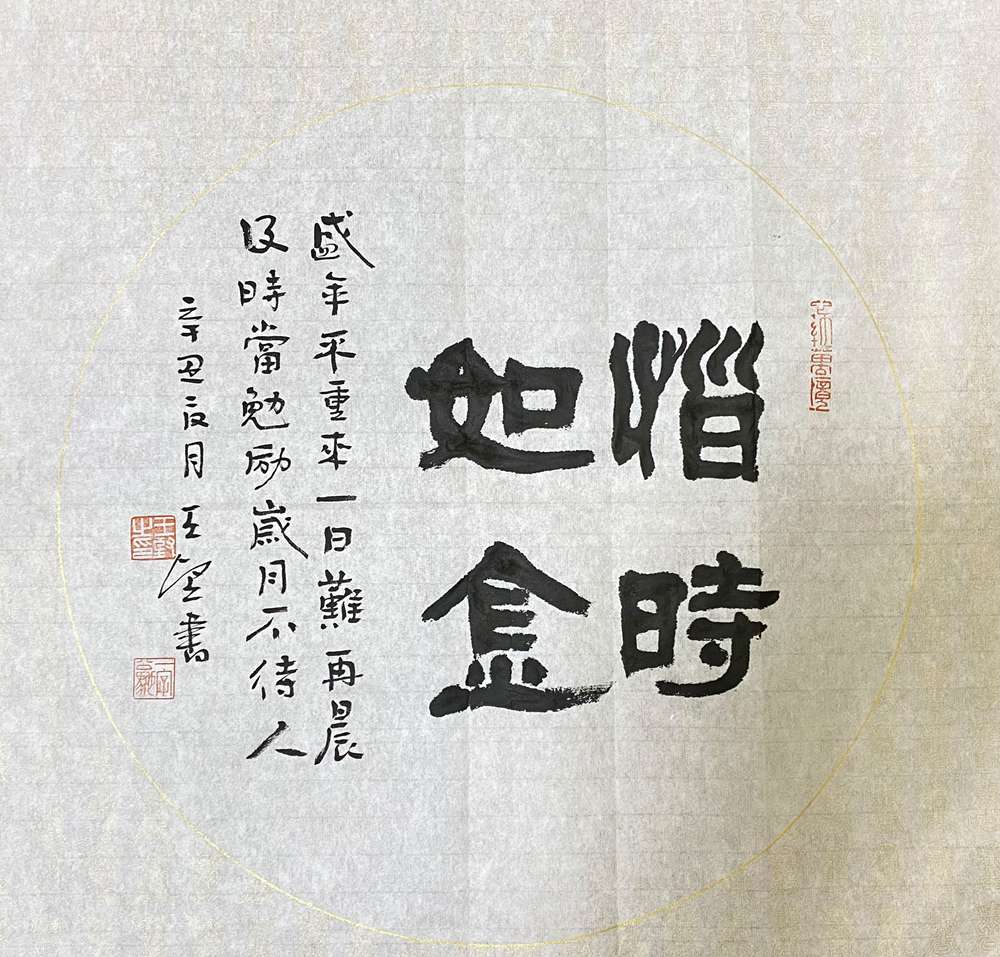 惜時
如金
盛年不重來一日難再晨
及時當勉励歲月不待人
辛丑月王書